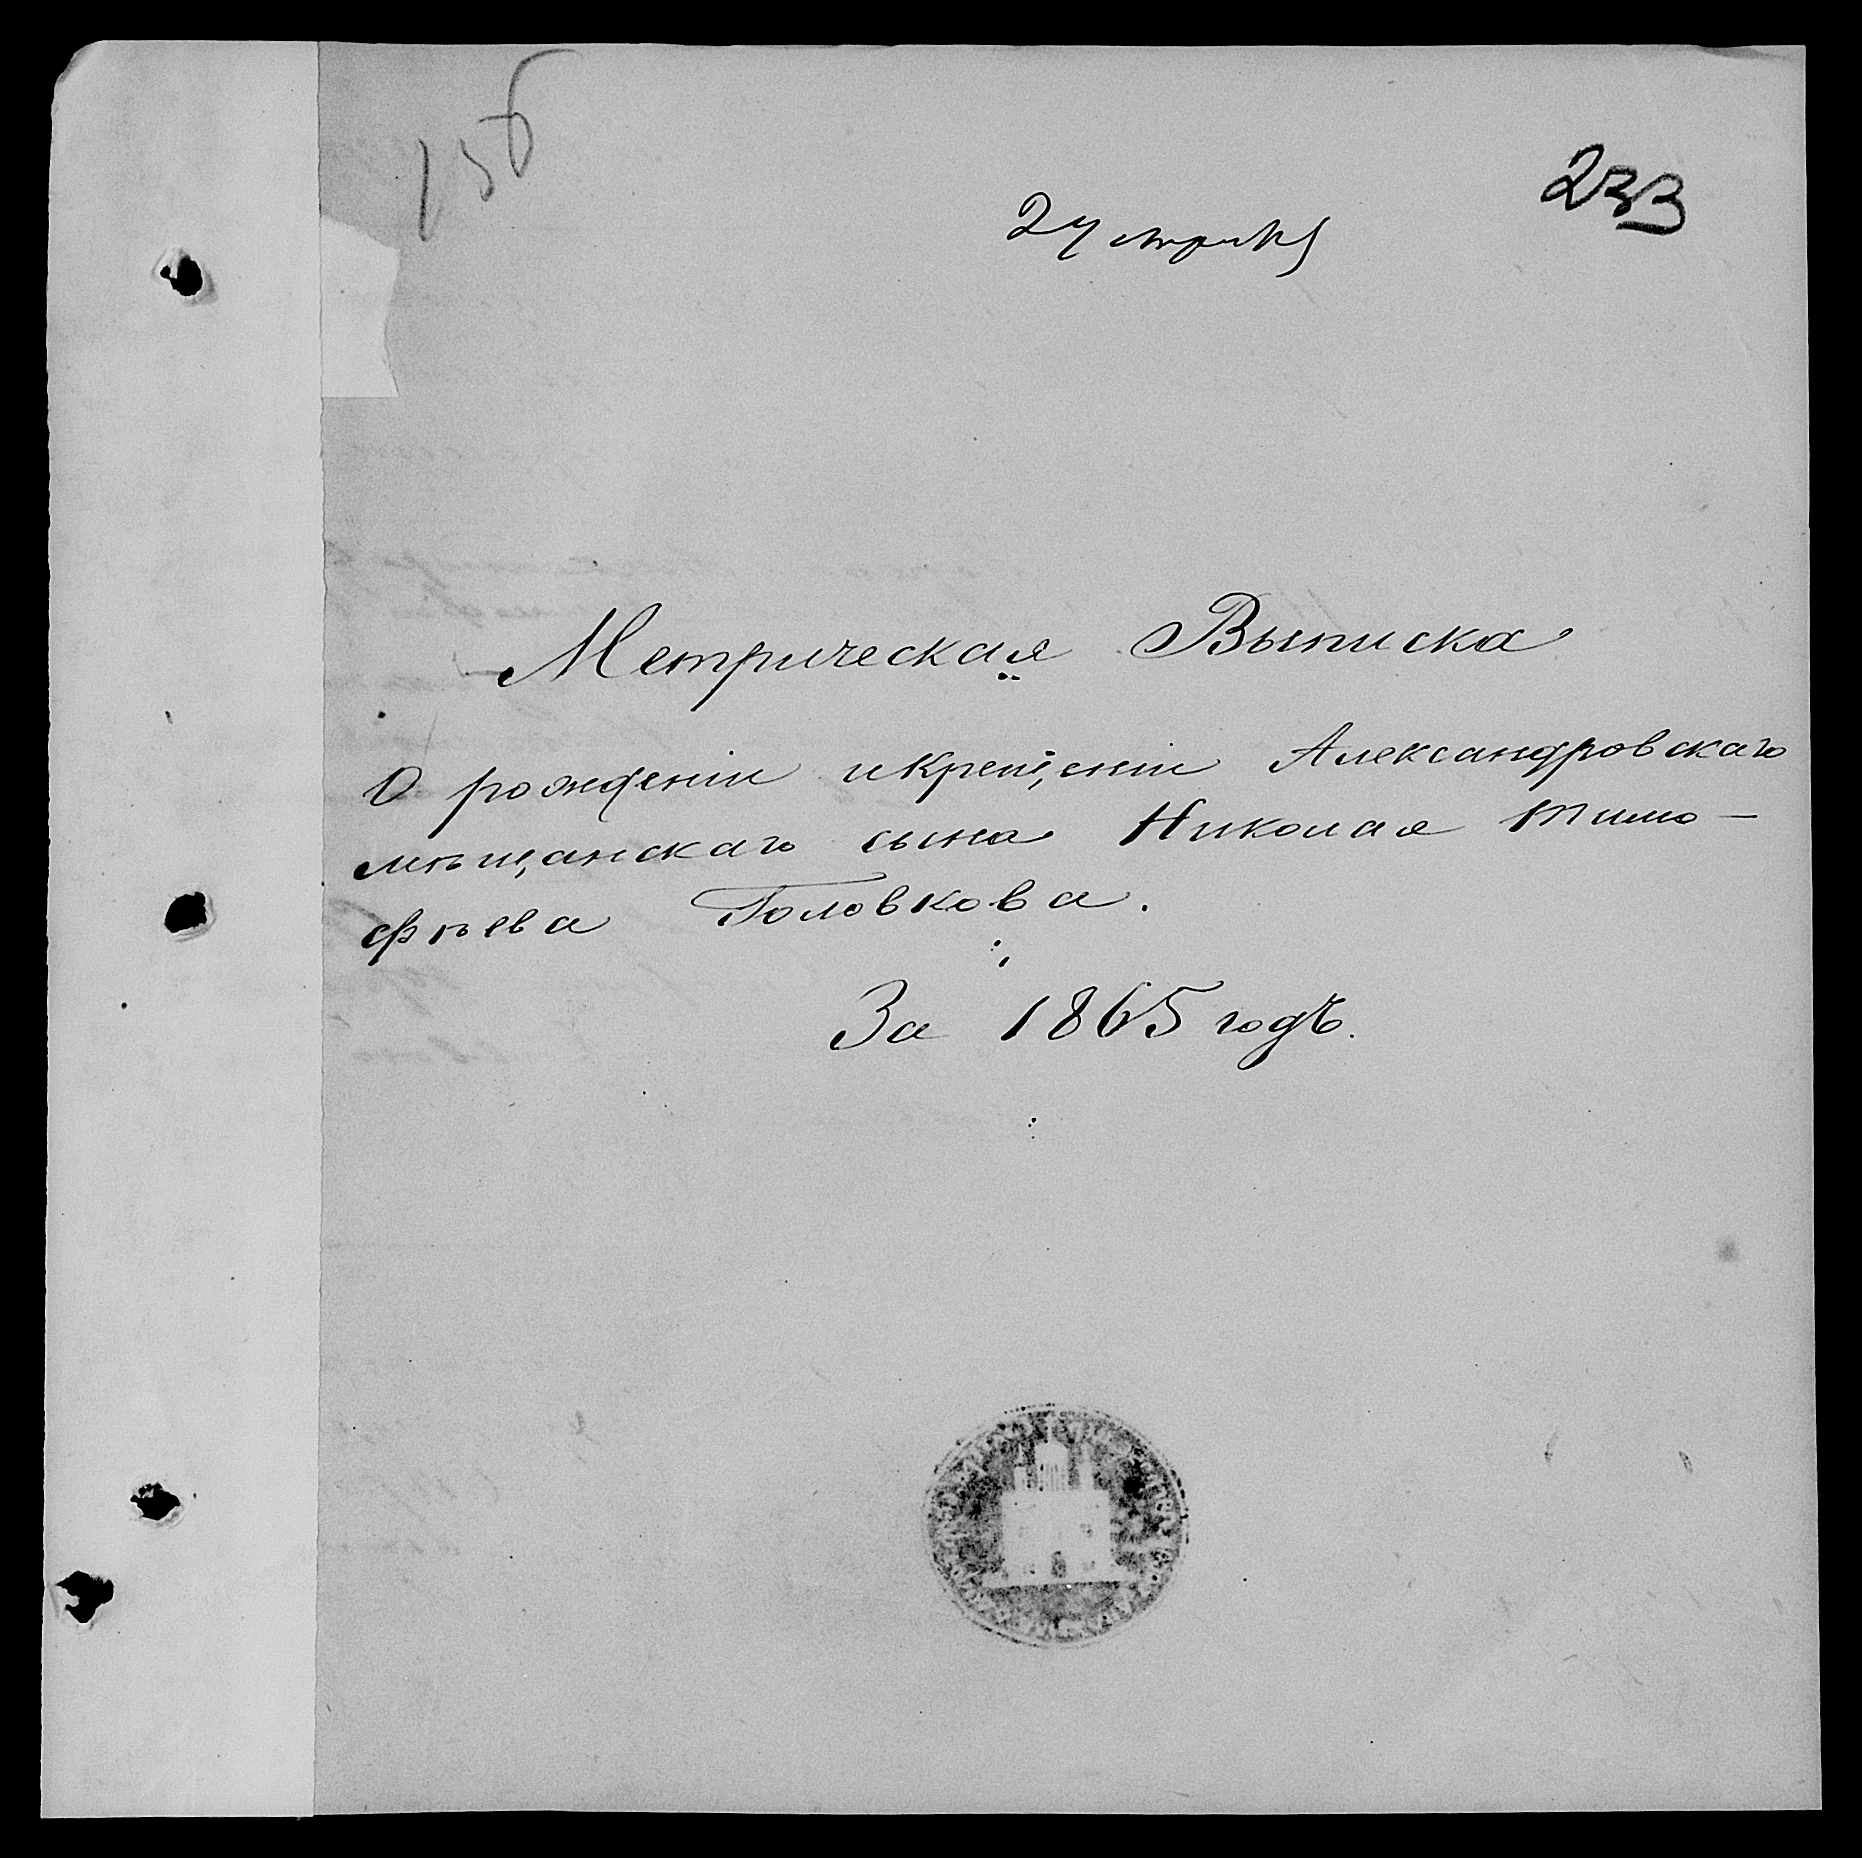 156
233
Метрическая Выписка
О рожденіи и крещеніи Александровскаго
мѣщанскаго сына Николая Тимо-
фѣева Головкова.
За 1865 годъ.